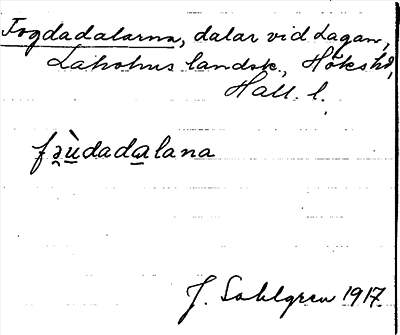 Fogdadalarna, dalar vid Lagan,
Laholms landsk., Höks hd,
Hall. l.
fə̯ù̲dada̲lana
J. Sahlgren 1917.